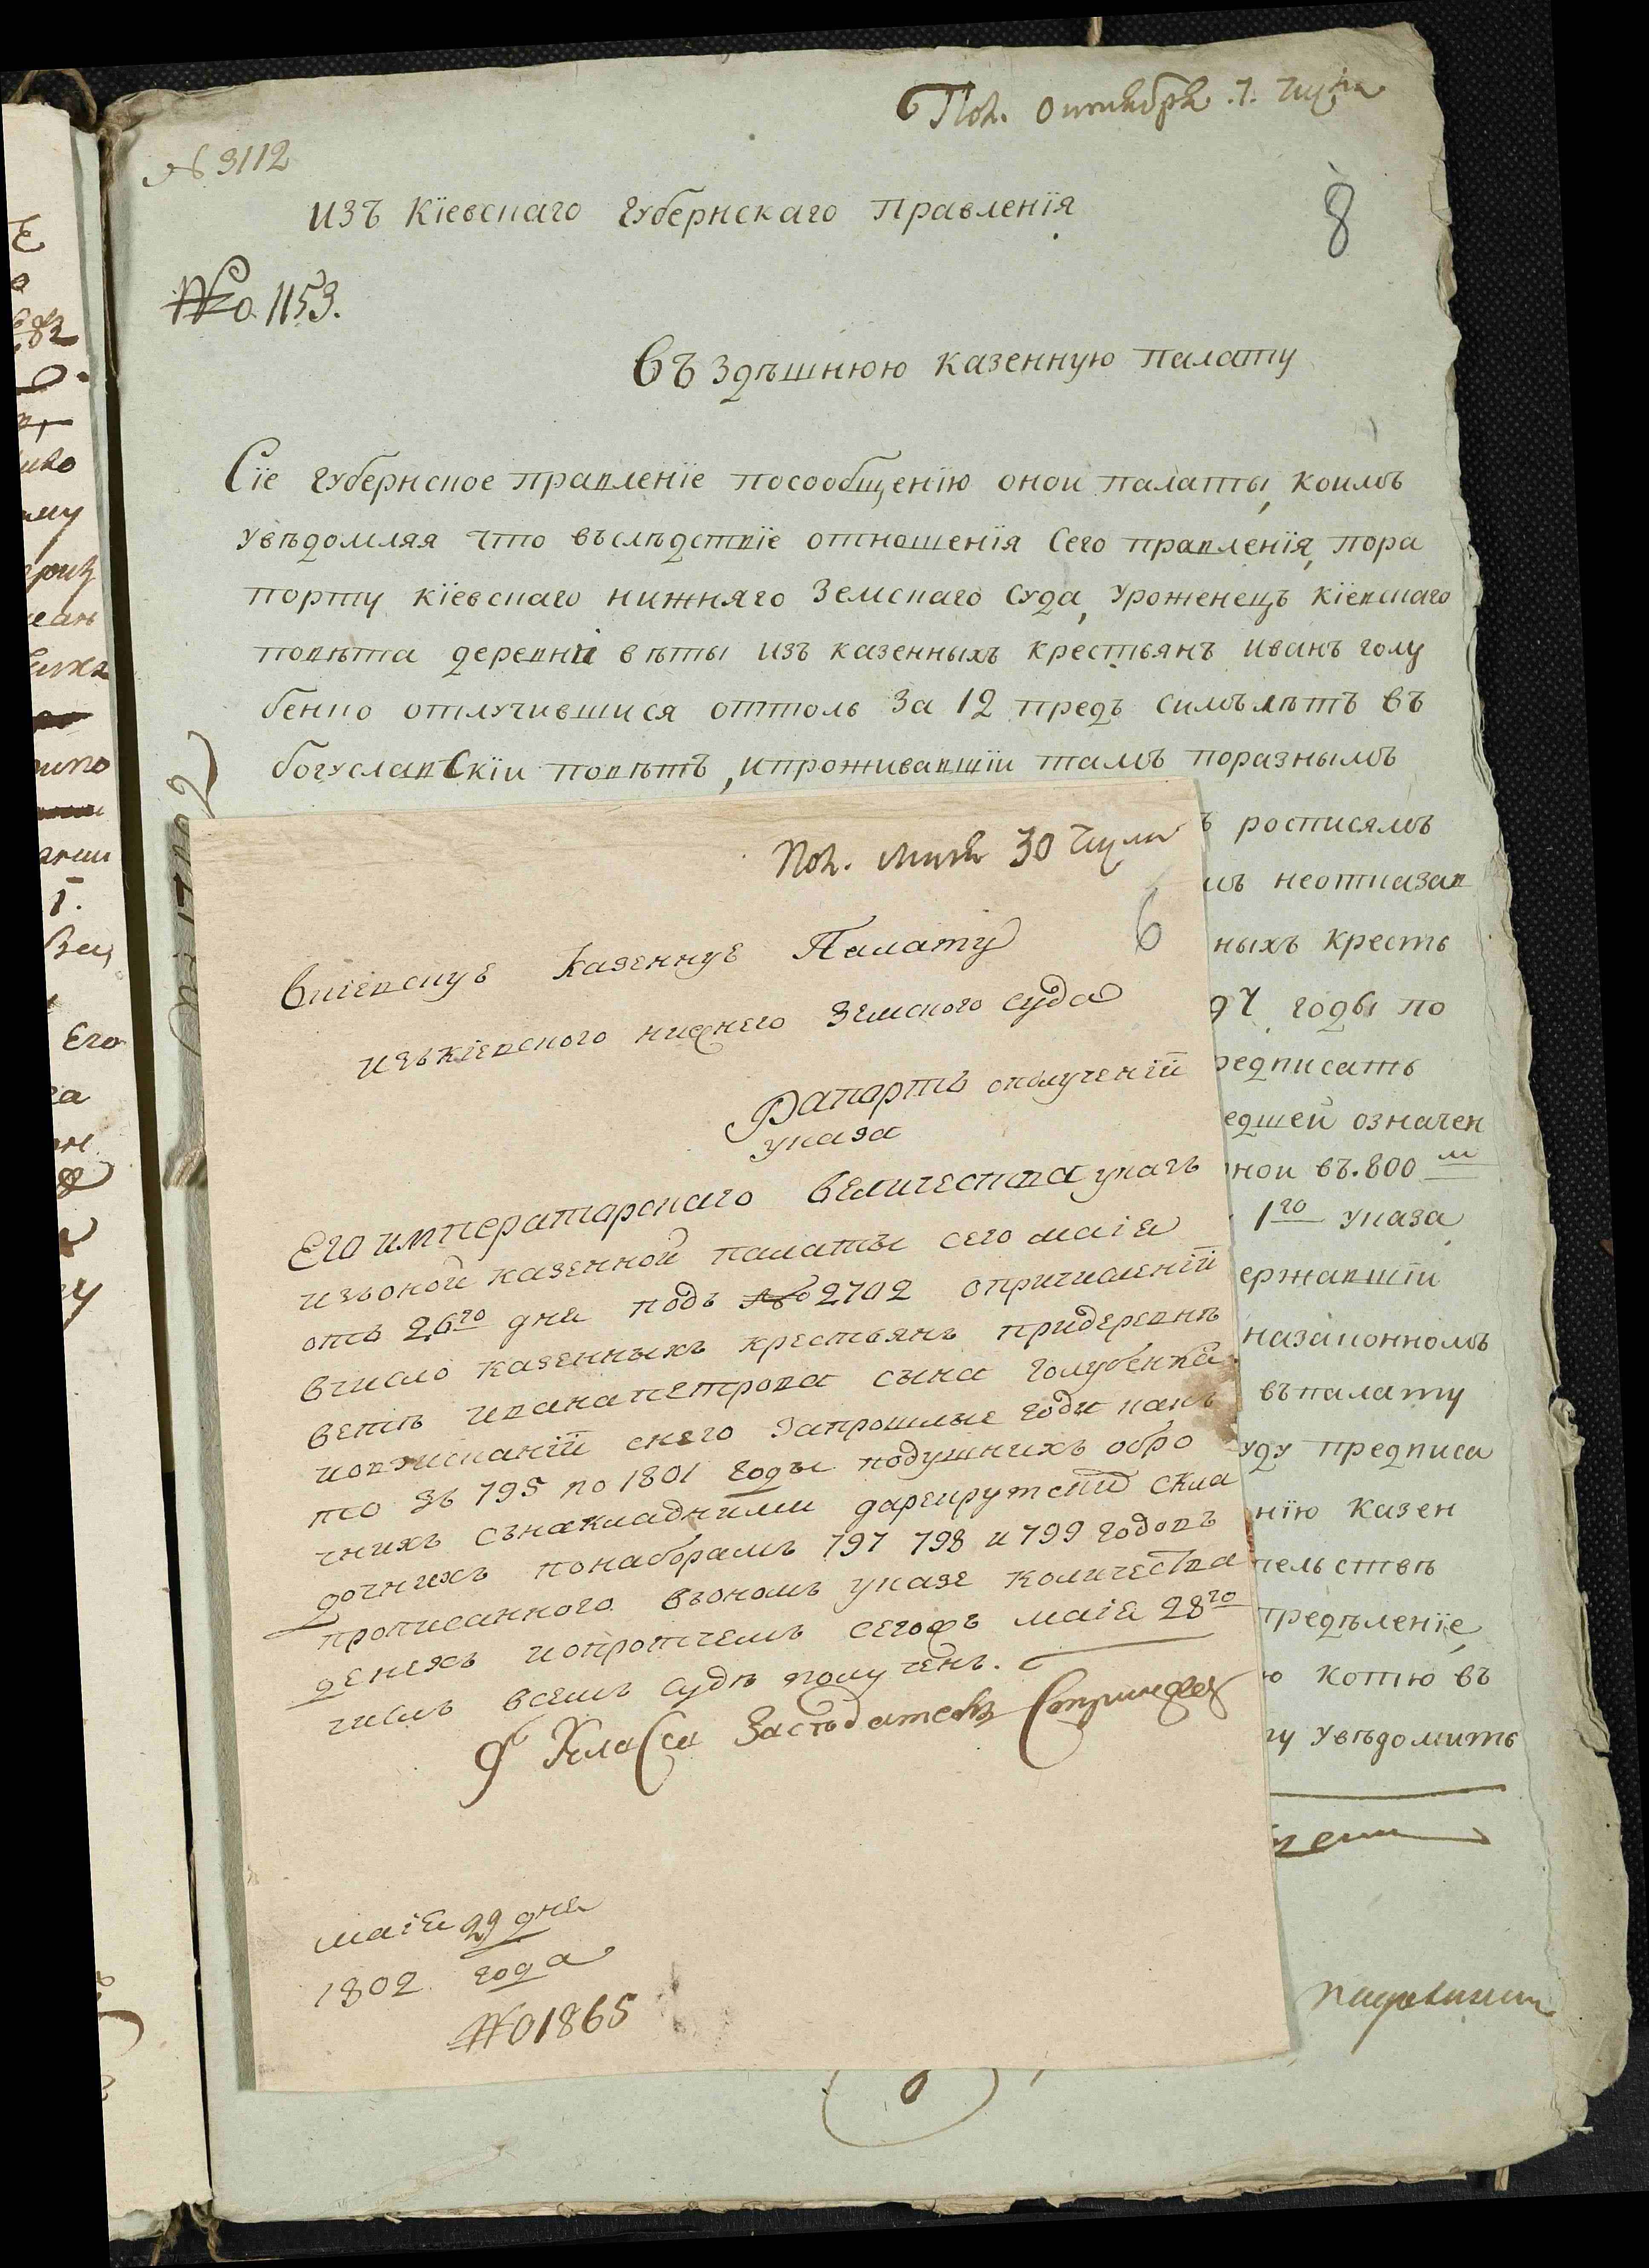 Пол. октября .7. числа
№ 3112
изъ Кіевскаго Губернскаго правленія
8
№ 1153.
въ здѣшнюю казенную палату
Сіе губернское правленіе посообщенію онои палаты, коимъ
увѣдомляя что въслѣдствіе отношенія сего правленія, пора
порту кіевскаго нижняго земскаго суда, уроженецъ кіевскаго
повѣта деревни вѣты изъ казенныхъ крестьянъ иванъ голу
бенко отлучившися оттоль за 12 предъ симъ лѣтъ въ
богуславскіи повѣтъ, ипроживавшіи тамъ поразнымъ
ъ росписямъ
мъ неотказав
ныхъ кресть
годы по
редписать
едшей означен
ной въ.800 м
1го указа
ержавшіи
назаконномъ
въпалату
уду предписа
нію казен
тельствѣ
предѣленіе,
ю копію въ
ту увѣдомить
Пол. мая 30 числа
6
Вкіевскуе казеннуе Палату
изъкіевского нижнего земского суда
Рапортъ ополученіи
указа
Его императорскаго величества указъ
изъоной казенной палаты сего маія
отъ 26го дня подъ № 2702 опричисленіи
вчисло казенныхъ крестьянъ придеревнѣ
ветѣ иванапетрова сына голубенка
иовзисканіи снего запрошлые годы какъ
то зъ 795 по 1801 годы подушнихъ обро
чнихъ сънакладними дарекрутскихъ скла
дочнихъ понаборамъ 797 798 и 799 годовъ
прописанного въономъ указе количества
денехъ иопротчемъ сегожъ маія 28го
числъ всемъ судѣ полученъ.
9 класса Заседатель
маія 29 дня
1802 года
№ 1865